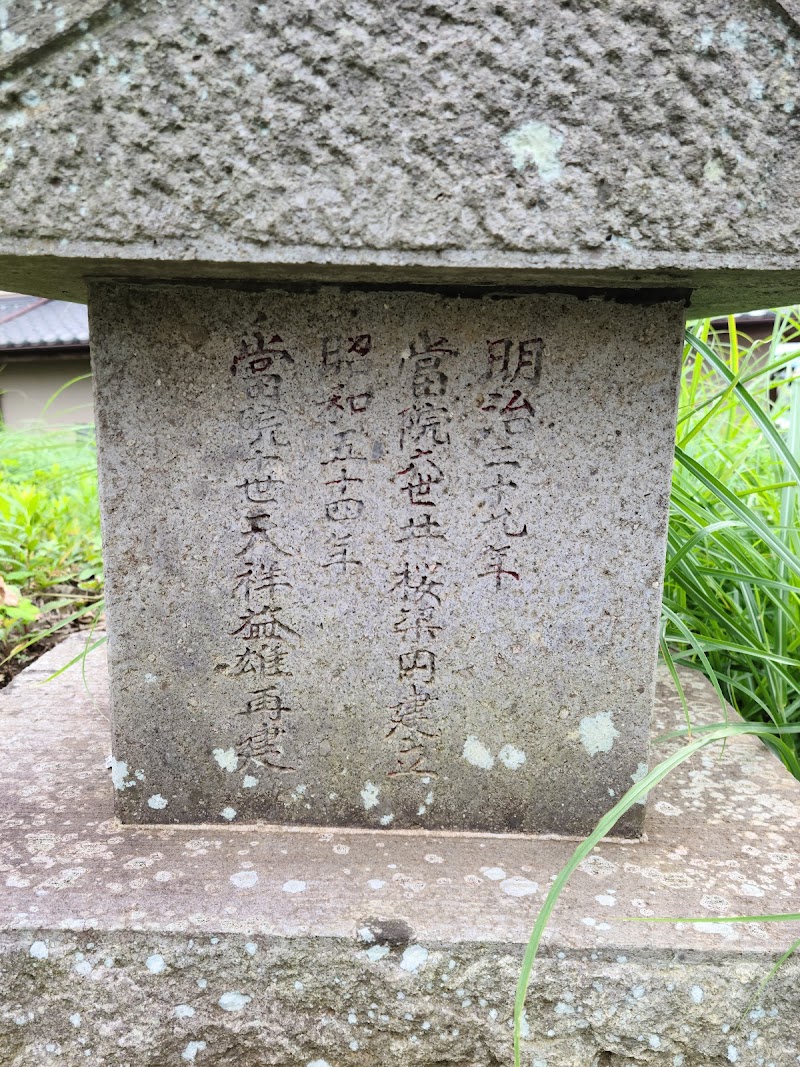 明治二十九年
當院六世丗桜梁円建立
昭和五十四年
當院十世天祥益雄再建